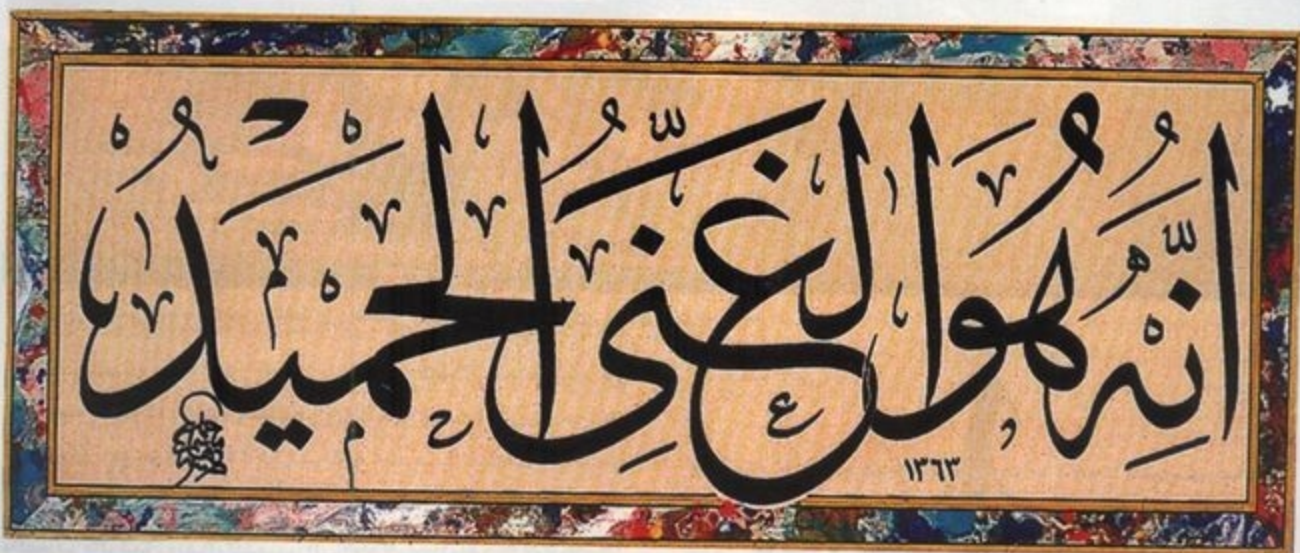 انه هو الغنى الحميد
١٣٦٣